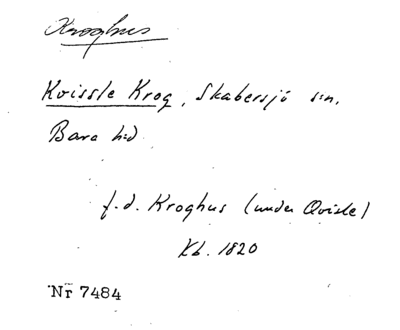 Kroghus
Kvissle Krog, Skabersjö s:n.
Bara h:d
f.d. Kroghus (under Qvisle)
Kb. 1820
Nr 7484